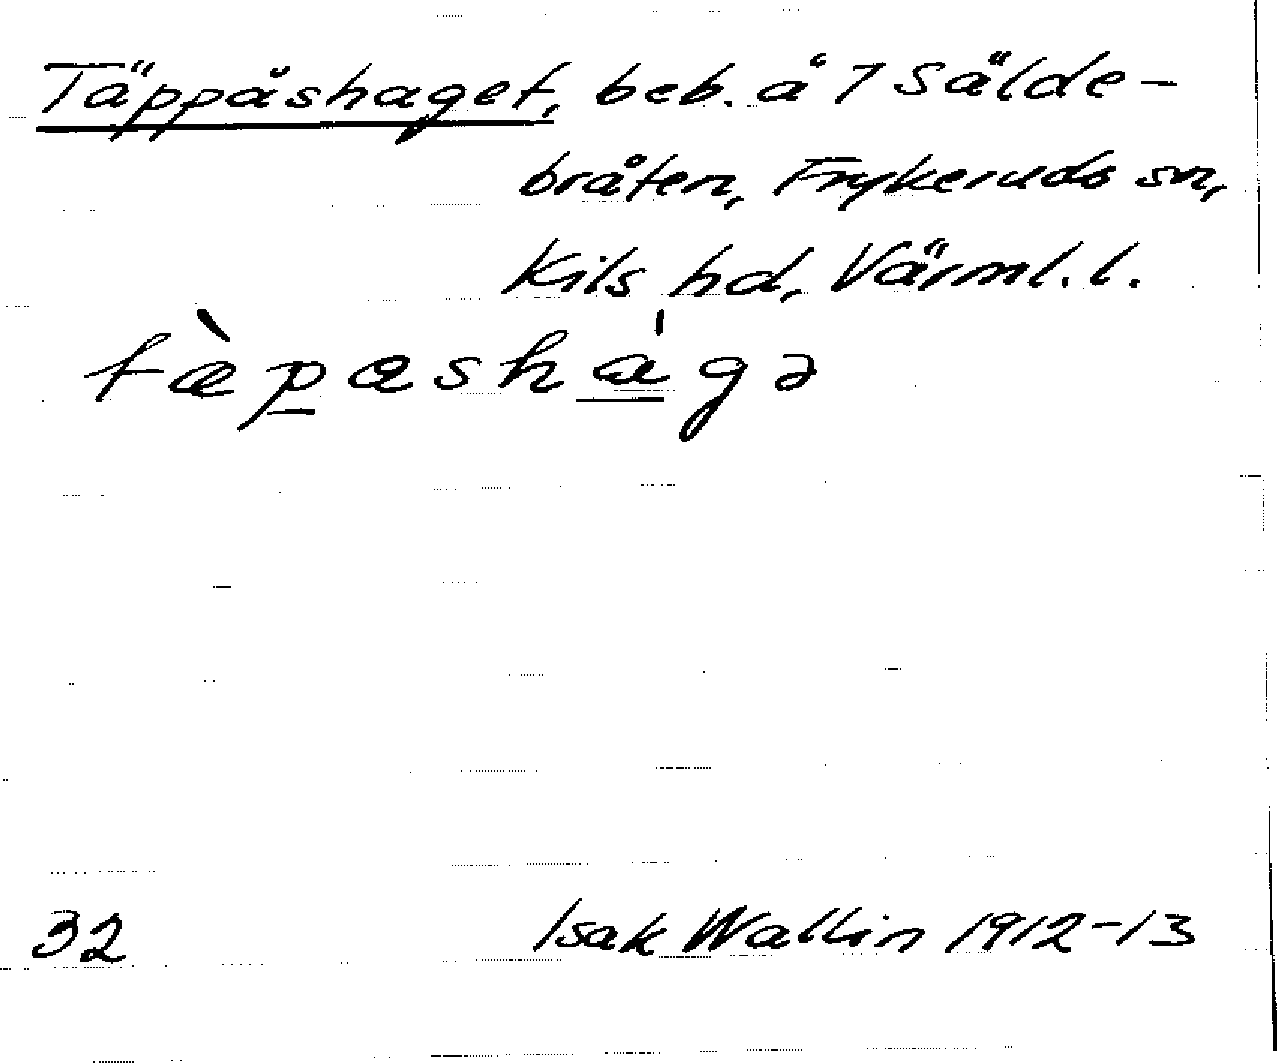 Täppåshaget, beb. å 7 Sälde-
bråten, Frykeruds sn,
Kils hd, Värml. l.
tæ̀p̲ashá̲gə
32 Isak Wallin 1912-13